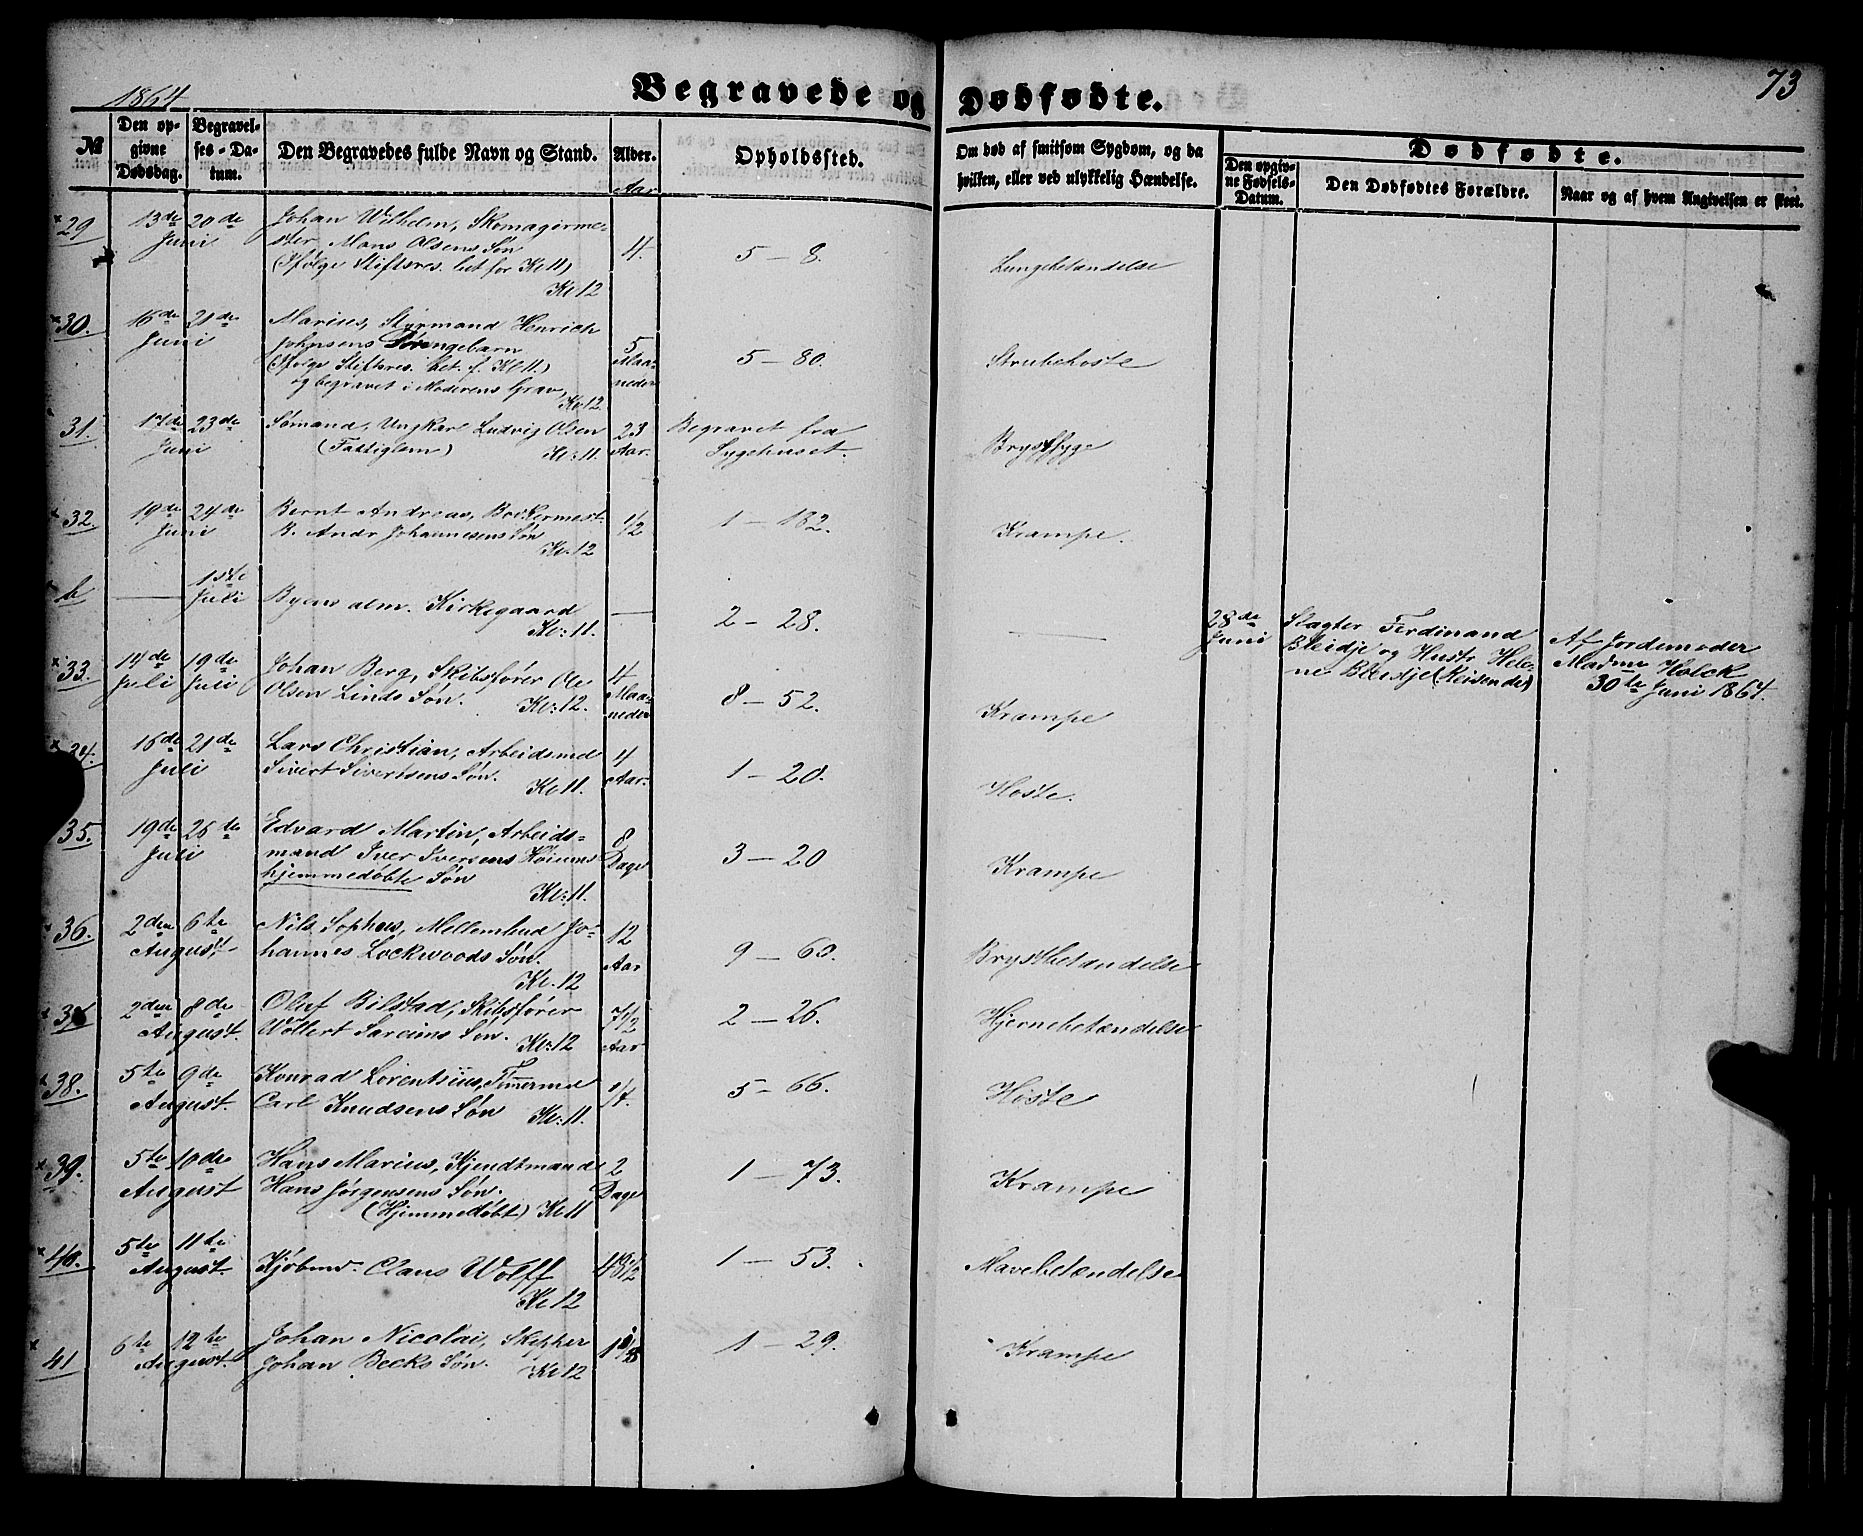 1864
Begravede og Dødfødte.
73
№
Den opgivne Dødsdag.
Begravelses-Datum.
Den Begravedes fulde Navn og Stand.
Alder.
Aar
Opholdssted.
Om død af smitsom Sygdom, og da hvilken, eller ved ulykkelig Hændelse.
Dødfødte.
Den opgivne Fødsels-Datum.
Den Dødfødtes Forældre.
Naar og af hvem Angivelsen er skeet.
29 13de Juni 20de Johan Wilhelm, Skomagerme-
ster Mons Olsens Søn 4. 5 - 8. Lungebetændelse
(Ifølge Stiftsres. bet for Kl 11)
Kl 12
30. 16de Juni 21de Marius, Styrmand Henrich
Johnsens Drengebarn 5 Maaneder 5 - 80. Strubehoste
(Ifølge Stiftsres. bet. f. Kl 11.)
og begravet i Moderens Grav,
Kl. 12.
31. 17de Juni 23de Sømand, Ungkarl Ludvig Olsen 23 Aar. Begravet fra
(Fattiglem) Kl: 11. Sygehuset. Brystsyge
32. 19de Juni 24de Bernt Andreas, Bødkermest.
B. Andr Johannesens Søn 1/2 1 - 182. Krampe.
Kl. 12
b — 1ste Juli Byens alm. Kirkegaard — 2 - 28. — 28de Juni Slagter Ferdinand
Kl: 11. Bleidje og Hustr Hele-
ne Bleidje (Reisende) Af Jordemoder
Madme Holck
30te Juni 1864.
33. 14de Juli 19de Juli Johan Berg, Skibsfører Ole
Olsen Linds Søn. Kl: 12. 4 Maaneder 8 - 52. Krampe
34. 16de Juli 21de Lars Christian, Arbeidsmd
Sivert Sivertsens Søn. 4 Aar. 1 - 20. Hoste.
Kl 11.
35. 19de Juli 25de Edvard Martin, Arbeids-
mand Iver Iversens 8 Dage 3 - 20 Krampe
hjemmedøbte Søn
Kl: 11.
36. 2den 6te August Nils Sophus, Mellembud Jo-
hannes Lockwoods Søn. 12 Aar 9 - 60. Brystbetændelse
Kl. 12
2den 8de August. Oluf Bilstad, Skibsfører
Wollert Søn. Kl: 12 7 1/2 Aar 2 - 26. Hjernebetændelse
38. 5te 9de August. Konrad Lorentsius, Timermd
Carl Knudsens Søn Kl: 11. 5 - 66. Hoste
39. 5te 10de August Hans Marius, Kjendtmand
Hans Jørgensens Søn. 2 Dage 1 - 73. Krampe
(Hjemmedøbt) Kl 11
40. 5te 11te August. Kjøbmd. Claus Wolff 1 - 53. Mavebetændelse
Kl 12
41 6te 12te August. Johan Nicolai, Skipper
Johan Becks Søn. Kl 12 1 - 29. Krampe